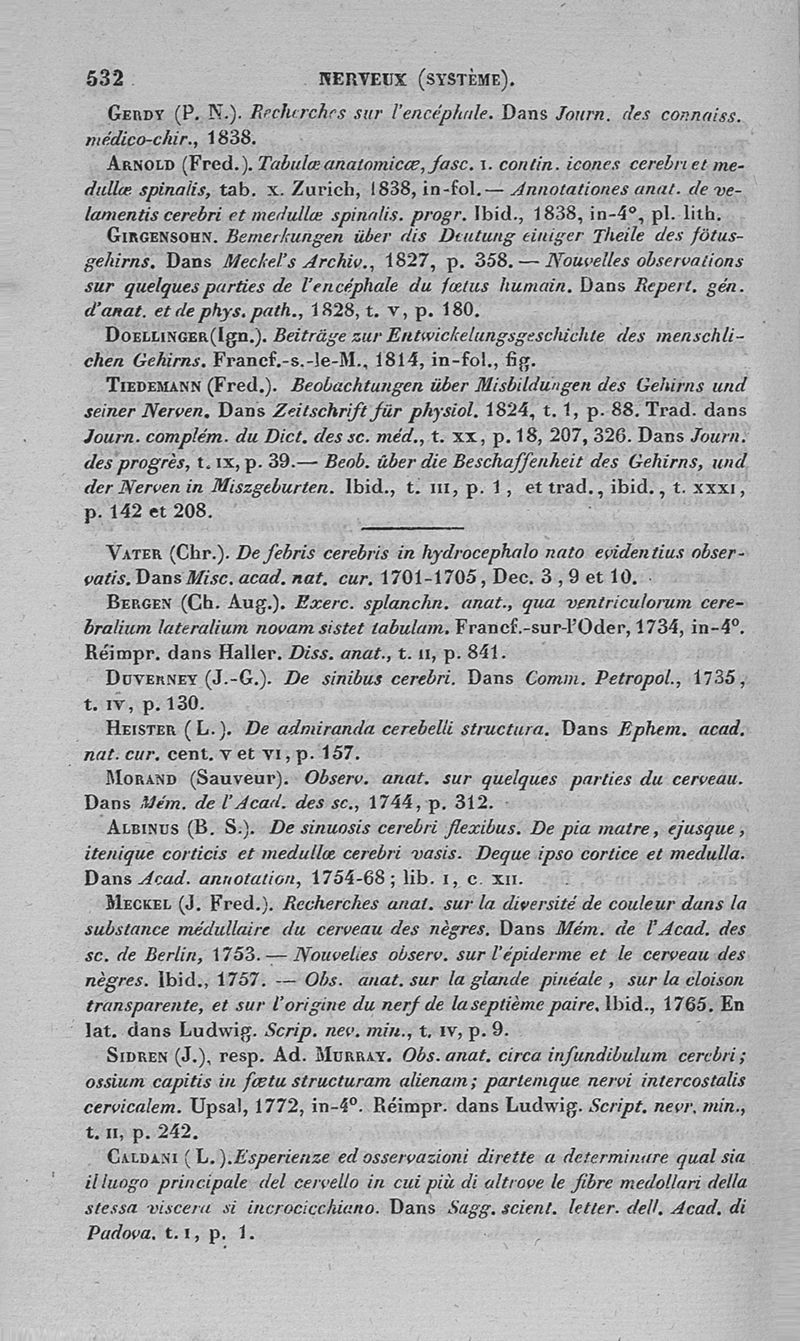 532 NERVEUX (SYSTÈME).
GERDY (P. N.). Recherches sur l'encéphale. Dans Journ. des connaiss.
médico-chir., 1838.
ARNOLD (Fred.). Tabulæ anatomicæ, fasc. I. contin. icones cerebri et me-
dullæ spinalis, tab. X. Zurich, 1838, in-fol. — Annotationes anat. de ve-
lamentis cerebri et medullæ spinalis. progr. Ibid., 1838, in-4°, pl. lith.
GIRGENSOHN. Bemerkungen über dis Deutung einiger Theile des fötus-
gehirns. Dans Meckel's Archiv., 1827, p. 358. — Nouvelles observations
sur quelques parties de l'encéphale du fœtus humain. Dans Repert. gén.
d'anat. et de phys. path., 1828, t. V, p. 180.
DOELLINGER (Ign.). Beiträge zur Entwickelungsgeschichte des menschli-
chen Gehirns. Francf.-s.-le-M., 1814, in-fol., fig.
TIEDEMANN (Fred.). Beobachtungen über Misbildungen des Gehirns und
seiner Nerven. Dans Zeitschrift für physiol. 1824, t. 1, p. 88. Trad. dans
Journ. complém. du Dict. des sc. méd., t. XX, p. 18, 207, 326. Dans Journ.
des progrès, t. IX, p. 39. — Beob. über die Beschaffenheit des Gehirns, und
der Nerven in Miszgeburten. Ibid., t. III, p. 1, et trad., ibid., t. XXXI,
p. 142 et 208.
VATER (Chr.). De febris cerebris in hydrocephalo nato evidentius obser-
vatis. Dans Misc. acad. nat. cur. 1701-1705, Dec. 3, 9 et 10.
BERGEN (Ch. Aug.). Exerc. splanchn. anat., qua ventriculorum cere-
bralium lateralium novam sistet tabulam. Francf.-sur-l'Oder, 1734, in-4°.
Réimpr. dans Haller. Diss. anat., t. II, p. 841.
DUVERNEY (J.-G.). De sinibus cerebri. Dans Comm. Petropol., 1735,
t. IV, p. 130.
HEISTER (L.). De admiranda cerebelli structura. Dans Ephem. acad.
nat. cur. cent. V et VI, p. 157.
MORAND (Sauveur). Observ. anat. sur quelques parties du cerveau.
Dans Mém. de l'Acad. des sc., 1744, p. 312.
ALBINUS (B. S.). De sinuosis cerebri flexibus. De pia matre, ejusque,
itenique corticis et medullæ cerebri vasis. Deque ipso cortice et medulla.
Dans Acad. annotation, 1754-68; lib. I, c. XII.
MECKEL (J. Fred.). Recherches anat. sur la diversité de couleur dans la
substance médullaire du cerveau des nègres. Dans Mém. de l'Acad. des
sc. de Berlin, 1753. — Nouvelles observ. sur l'épiderme et le cerveau des
nègres. Ibid., 1757. — Obs. anat. sur la glande pinéale, sur la cloison
transparente, et sur l'origine du nerf de la septième paire. Ibid., 1765. En
lat. dans Ludwig. Scrip. nev. min., t. IV, p. 9.
SIDREN (J.), resp. Ad. MURRAY. Obs. anat. circa infundibulum cerebri;
ossium capitis in fœtu structuram alienam; partemque nervi intercostalis
cervicalem. Upsal, 1772, in-4°. Réimpr. dans Ludwig. Script. nevr. min.,
t. II, p. 242.
CALDANI (L.). Esperienze ed osservazioni dirette a determinare qual sia
il luogo principale del cervello in cui più di altrove le fibre medollari della
stessa viscera si incrocicchiano. Dans Sagg. scient. letter. dell. Acad. di
Padova. t. I, p. 1.